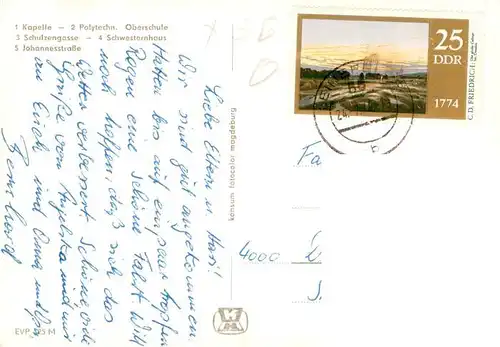 1 Kapelle — 2 Polytechn. Oberschule
3 Schulzengasse — 4 Schwesternhaus
5 Johannesstraße
Liebe Eltern u. Hasi!
Wir sind gut angekommen.
Hatten bis auf ein paar Tropfen
Regen eine schöne Fahrt. Wir
noch hoffen, daß sich das
Wetter verbessert. Schöne
Grüße von und mir
an Euch und Oma und
Bernhard
konsum fotocolor magdeburg
EVP M
25
DDR
1774
C.D. FRIEDRICH:
Fa
4000